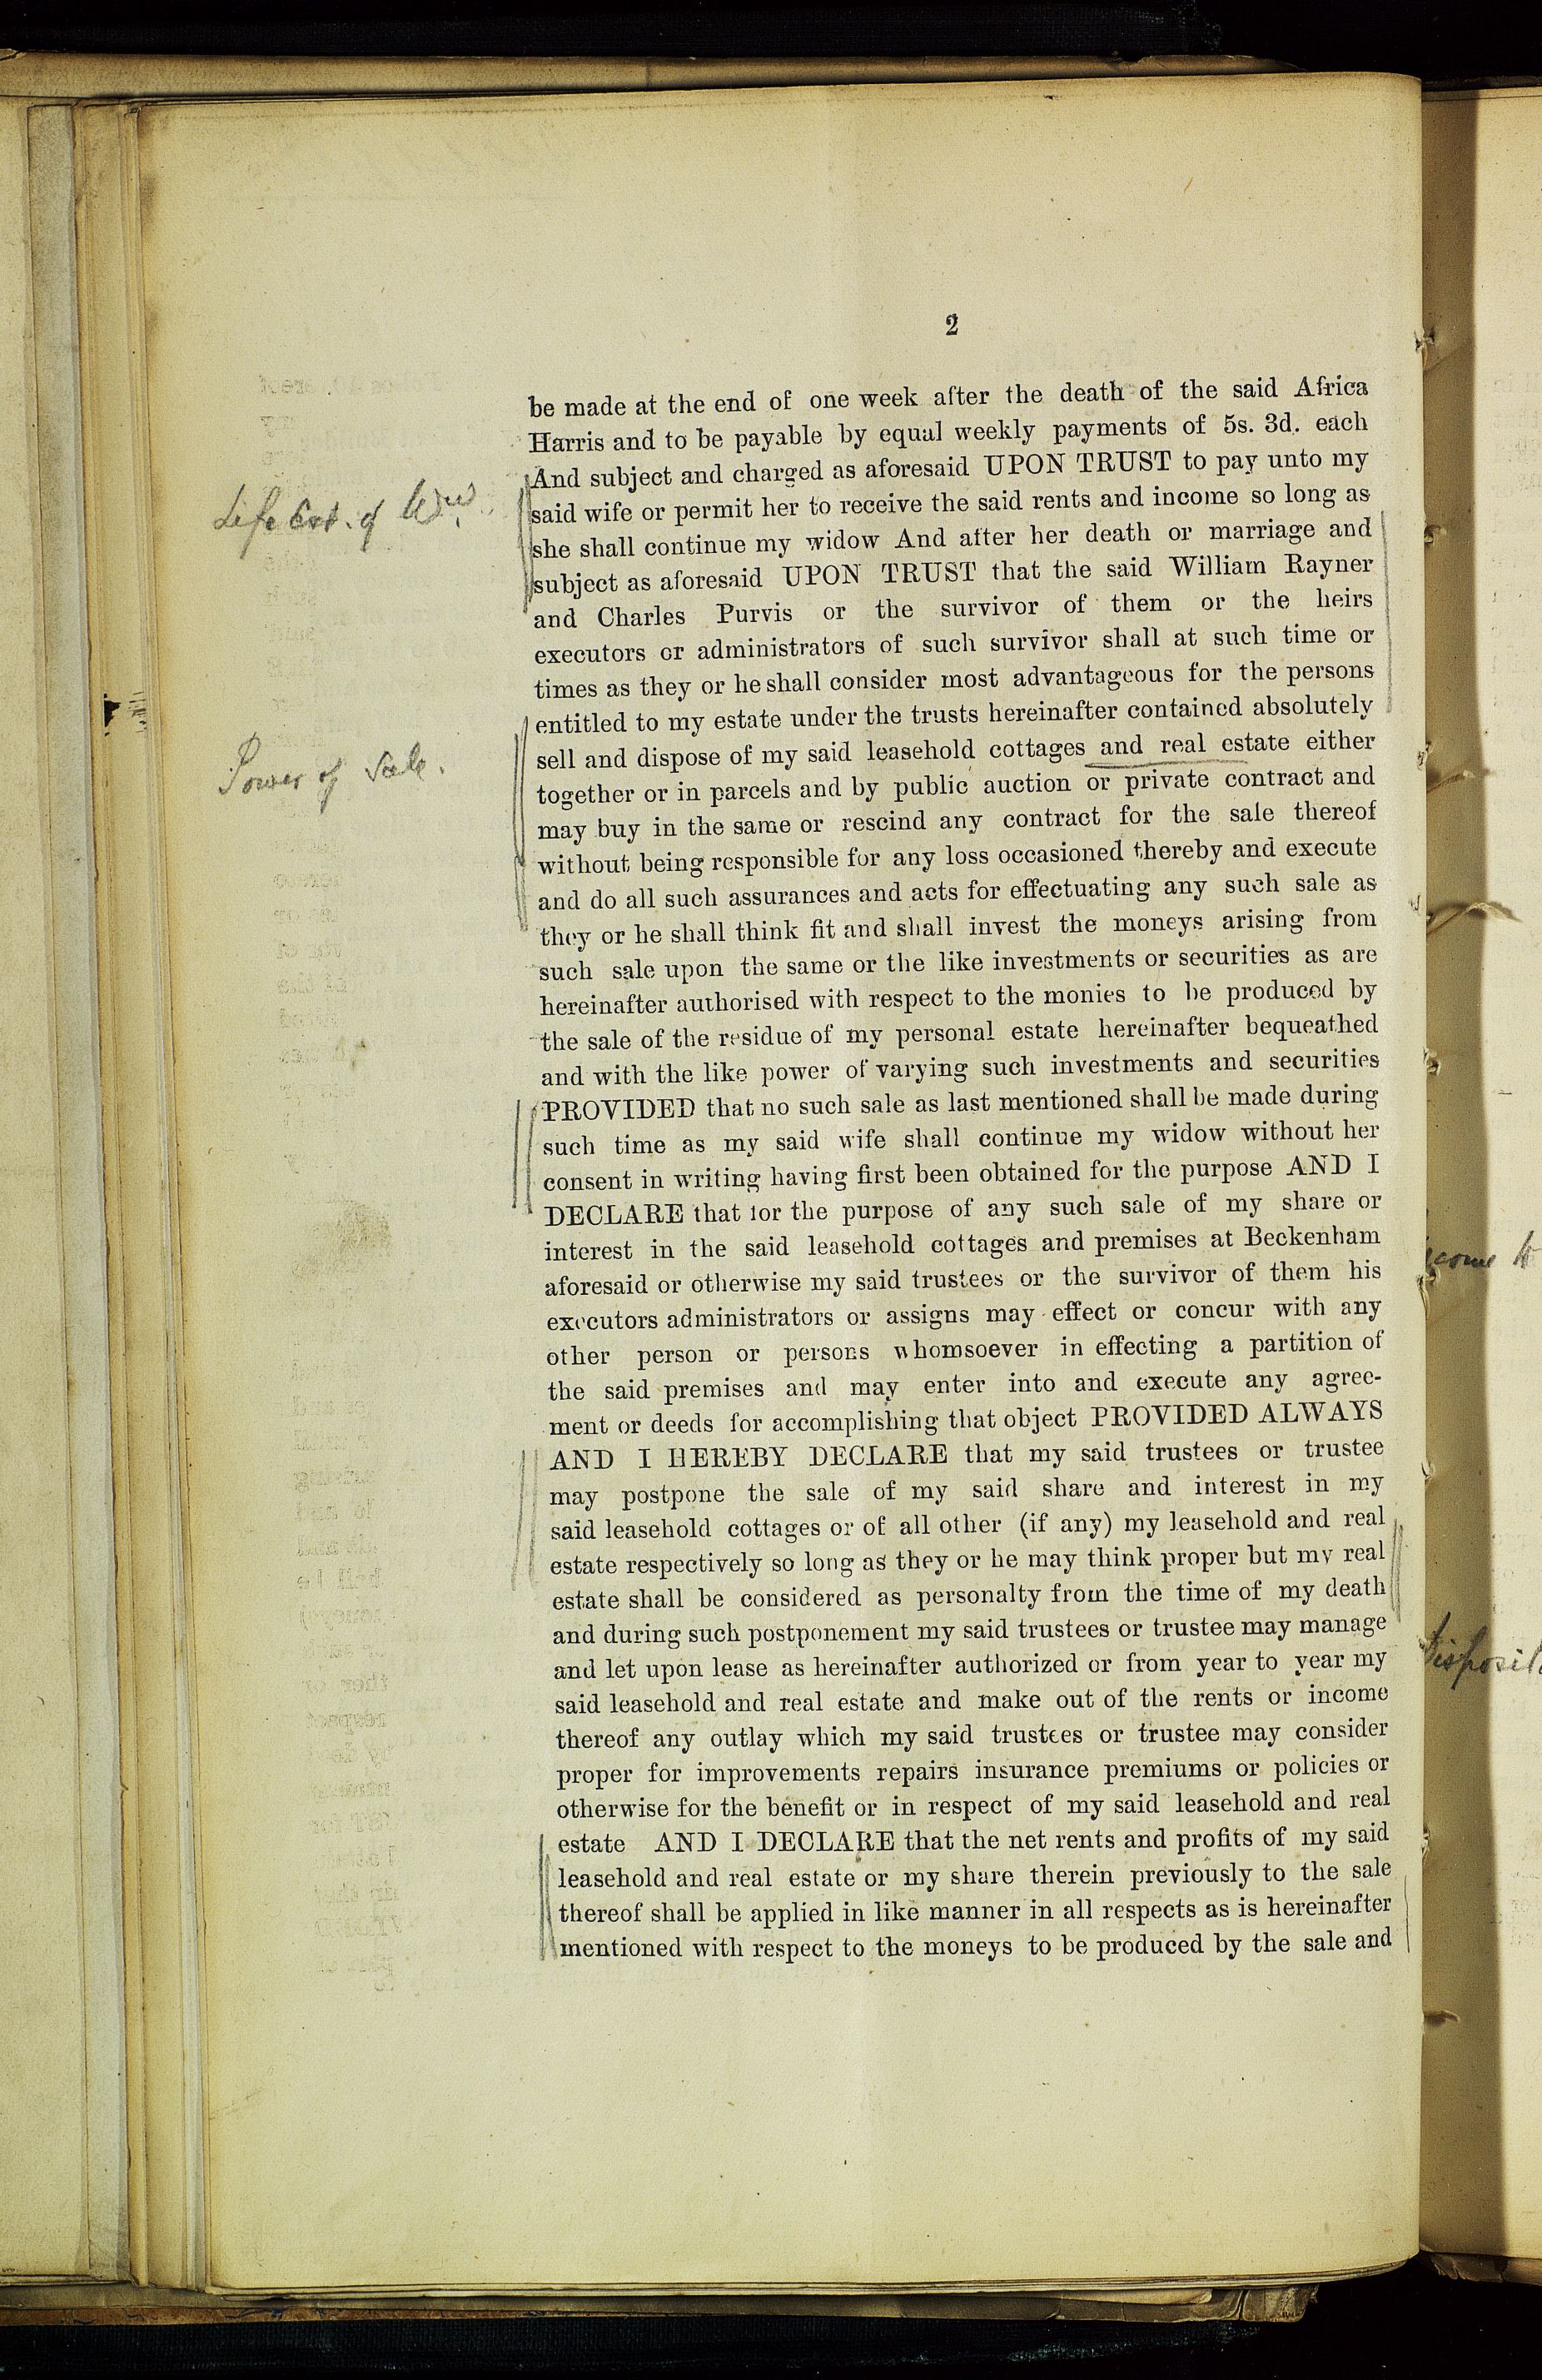 2
be made at the end of one week after the death of the said Africa
Harris and to be payable by equal weekly payments of 5s. 3d. each
And subject and charged as aforesaid UPON TRUST to pay unto my
Life Est. of Wid.
said wife or permit her to receive the said rents and income so long as
she shall continue my widow And after her death or marriage and
subject as aforesaid UPON TRUST that the said William Rayner
and Charles Purvis or the survivor of them or the heirs
executors or administrators of such survivor shall at such time or
times as they or he shall consider most advantageous for the persons
entitled to my estate under the trusts hereinafter contained absolutely
Power of Sale.
sell and dispose of my said leasehold cottages and real estate either
together or in parcels and by public auction or private contract and
may buy in the same or rescind any contract for the sale thereof
without being responsible for any loss occasioned thereby and execute
and do all such assurances and acts for effectuating any such sale as
they or he shall think fit and shall invest the moneys arising from
such sale upon the same or the like investments or securities as are
hereinafter authorised with respect to the monies to be produced by
the sale of the residue of my personal estate hereinafter bequeathed
and with the like power of varying such investments and securities
PROVIDED that no such sale as last mentioned shall be made during
such time as my said wife shall continue my widow without her
consent in writing having first been obtained for the purpose AND I
DECLARE that for the purpose of any such sale of my share or
interest in the said leasehold cottages and premises at Beckenham
aforesaid or otherwise my said trustees or the survivor of them his
executors administrators or assigns may effect or concur with any
other person or persons whomsoever in effecting a partition of
the said premises and may enter into and execute any agree-
ment or deeds for accomplishing that object PROVIDED ALWAYS
AND I HEREBY DECLARE that my said trustees or trustee
may postpone the sale of my said share and interest in my
said leasehold cottages or of all other (if any) my leasehold and real
estate respectively so long as they or he may think proper but my real
estate shall be considered as personalty from the time of my death
and during such postponement my said trustees or trustee may manage
and let upon lease as hereinafter authorized or from year to year my
said leasehold and real estate and make out of the rents or income
thereof any outlay which my said trustees or trustee may consider
proper for improvements repairs insurance premiums or policies or
otherwise for the benefit or in respect of my said leasehold and real
estate AND I DECLARE that the net rents and profits of my said
leasehold and real estate or my share therein previously to the sale
thereof shall be applied in like manner in all respects as is hereinafter
mentioned with respect to the moneys to be produced by the sale and